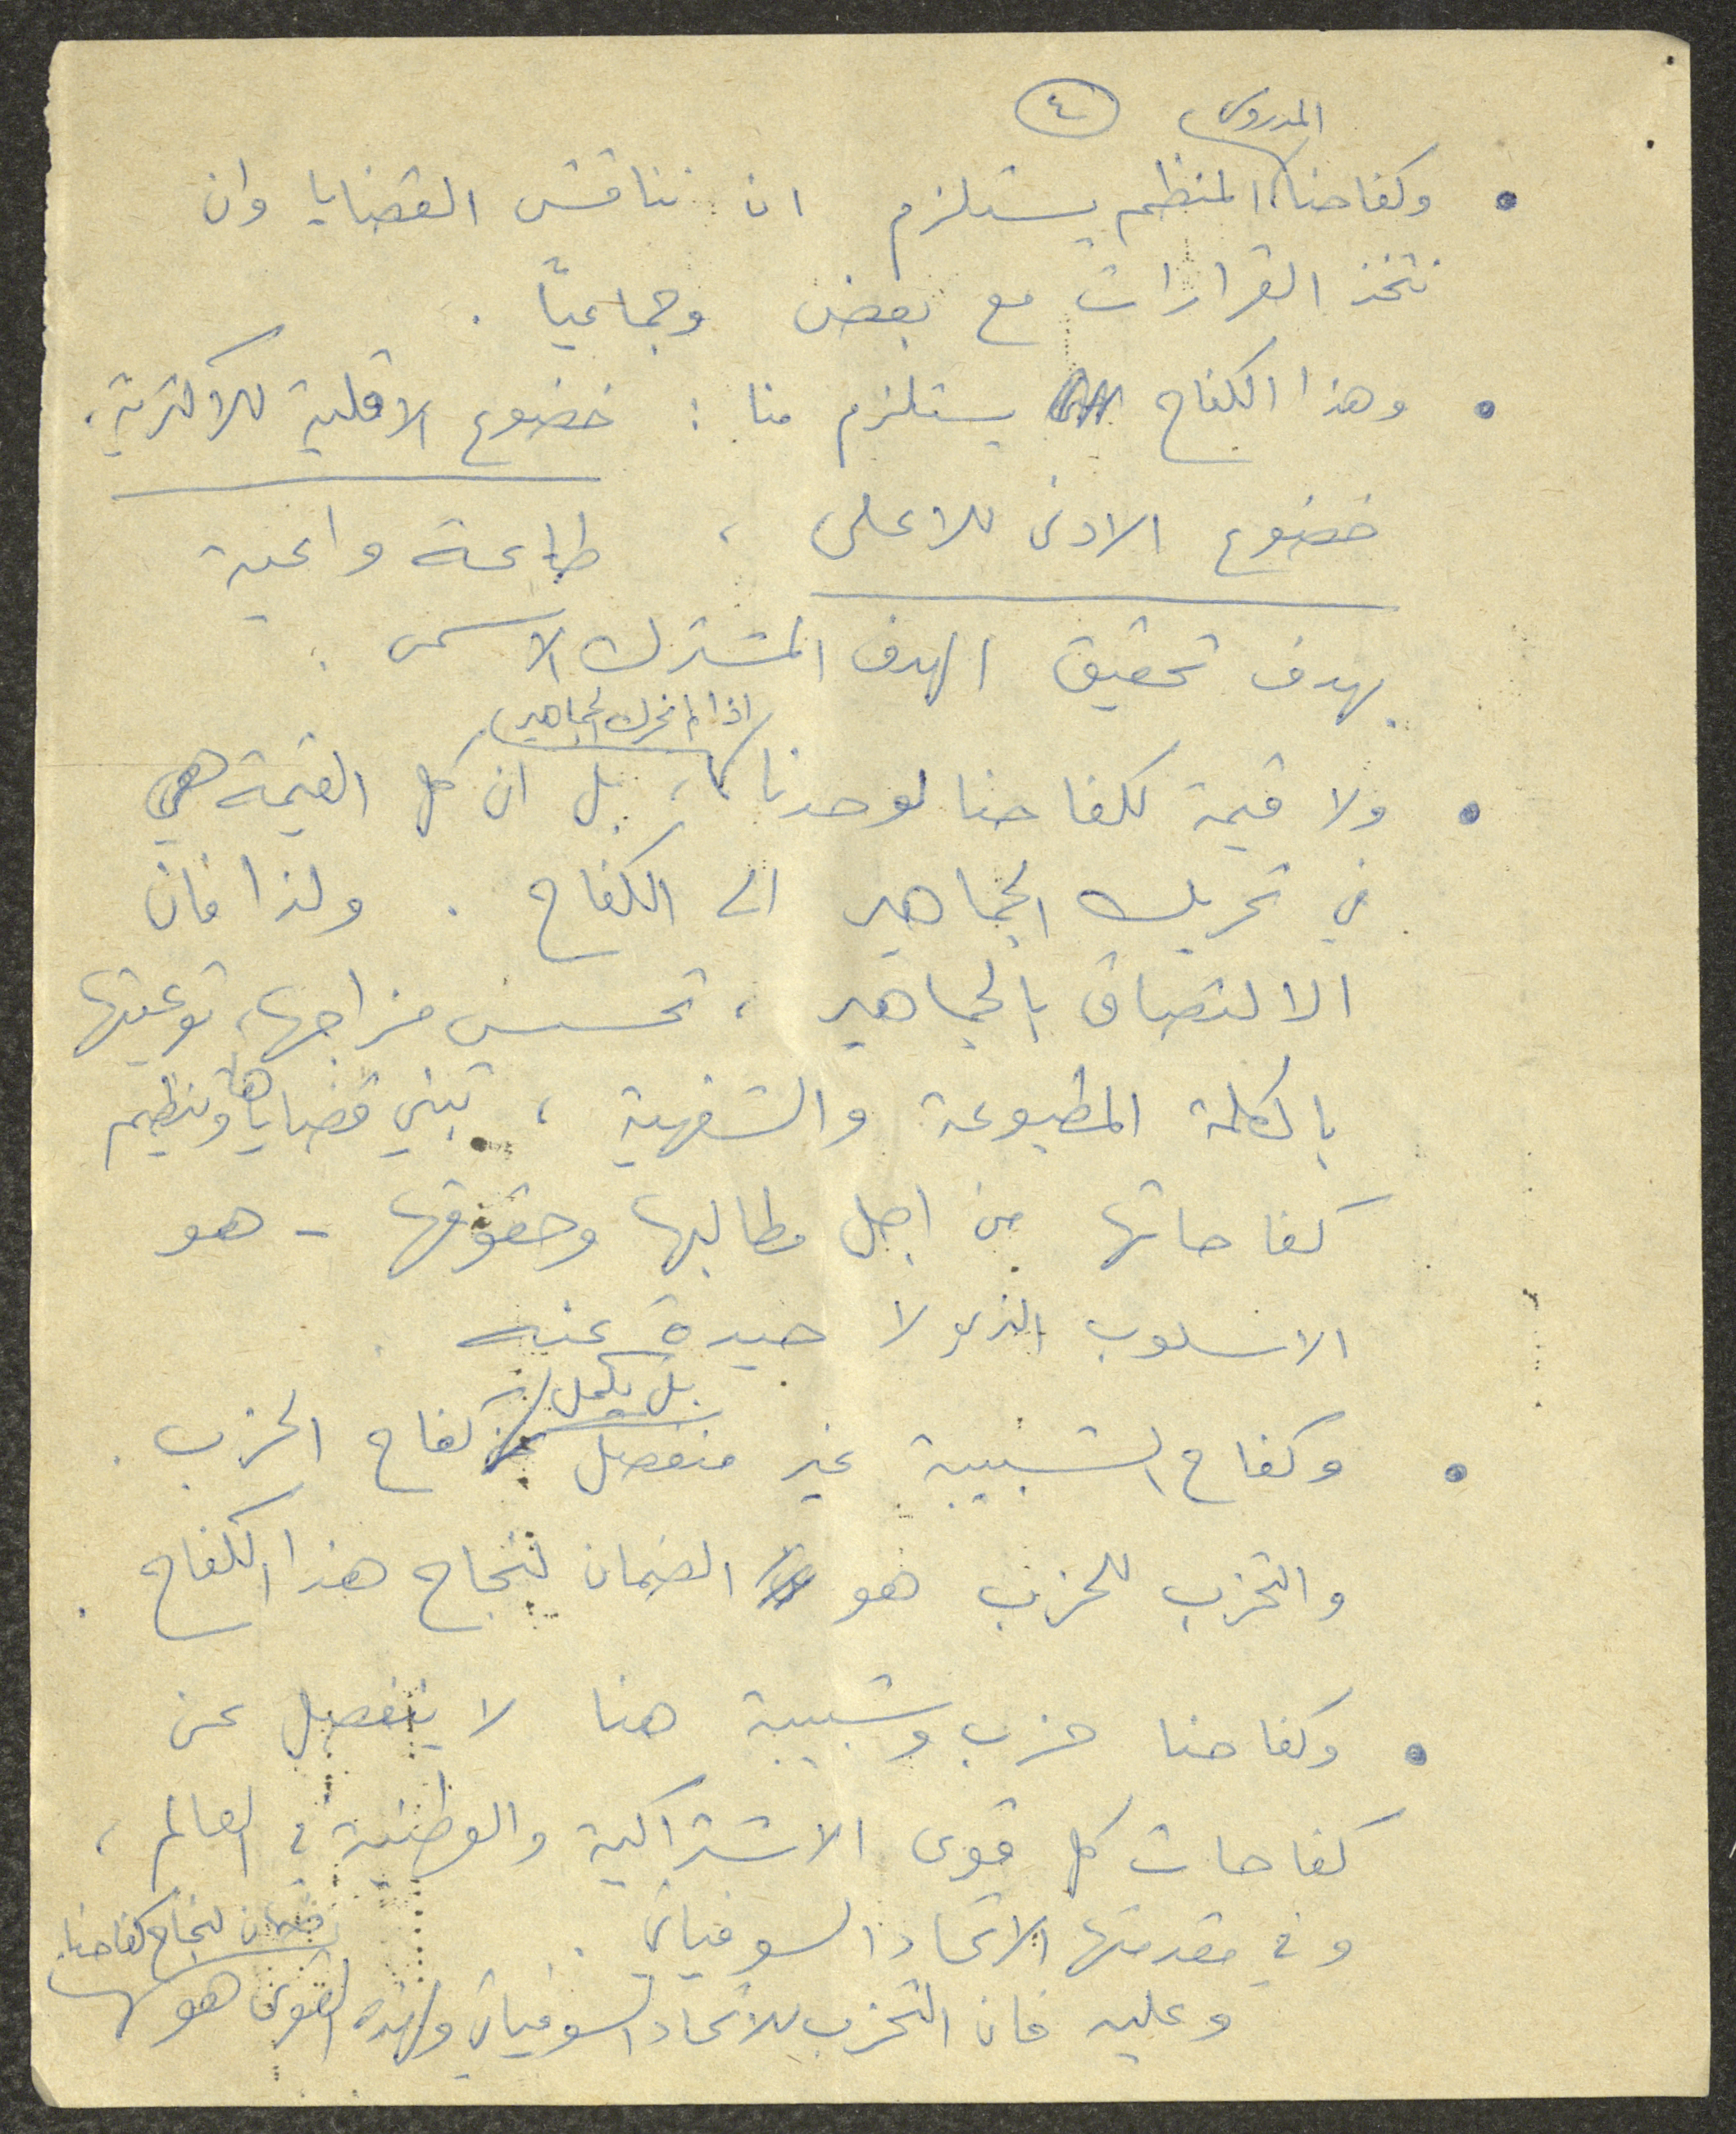 ٤
وكفاحنا المدروس المنظم يستلزم ان نناقش القضايا وان
نتخذ القرارات مع بعض وجماعياً .
وهذا الكفاح يستلزم منا : خضوع الاقلية للاكثرية ،
خضوع الادنى للاعلى ، طاعة واعية
بهدف تحقيق الهدف المشترك الاسمى .
ولا قيمة لكفاحنا لوحدنا اذا لم نحرك الجماهير ، بل ان كل القيمة هي
في تحريك الجماهير الى الكفاح . ولذا فان
الالتصاق بالجماهير ، تحسس مزاجها ، توعيتها
بالكلمة المطبوعة والشفهية ، تبني قضاياها وتنظيم
كفاحاتها من اجل مطالبها وحقوقها - هو
الاسلوب الذي لا حيدة عنه .
وكفاح الشبيبة غير منفصل بل يكمل كفاح الحزب .
والتحزب للحزب هو الضمان لنجاح هذا الكفاح .
وكفاحنا حزب وشبيبة هنا لا ينفصل عن
كفاحات كل قوى الاشتراكية والوطنية في العالم ،
وفي مقدمتها الاتحاد السوفياتي .
وعليه فان التحزب للاتحاد السوفياتي ولهذه القوى هو ضمان لنجاح كفاحنا .